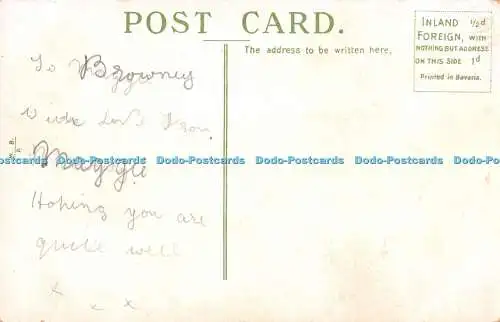 POST CARD.
The address to be written here.
INLAND ½d
FOREIGN, WITH
NOTHING BUT ADDRESS
ON THIS SIDE 1d
Printed in Bavaria.
To Browney
With Love from
Maggie
Hoping you are
quite well
x x x
Dodo-Postcards Dodo-Postcards Dodo-Postcards Dodo-Postcards Dodo-Postcards Dodo-Postcards